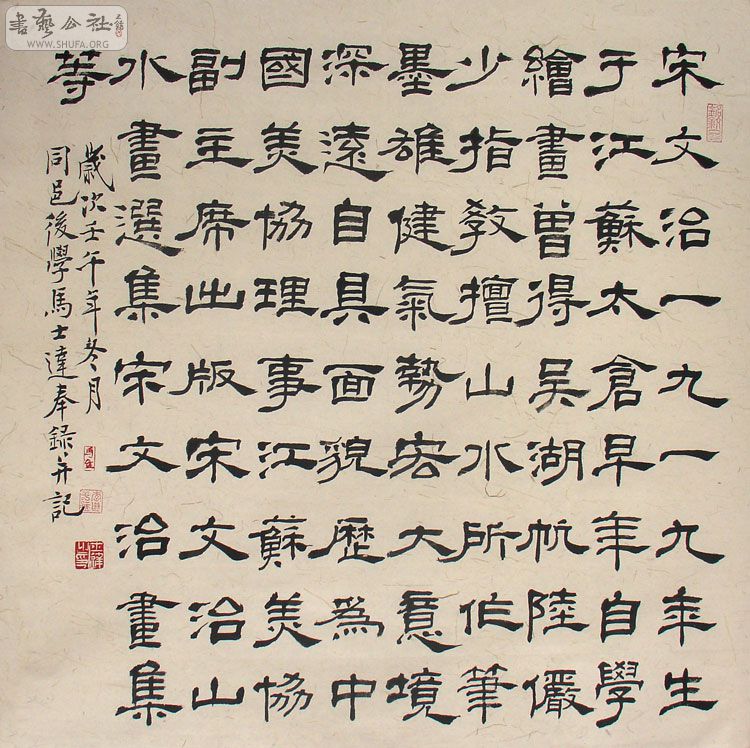 宋文治一九一九年生
于江蘇太倉早年自學
繪畫曾得吴湖帆陸儼
少指教擅山水所作筆
墨雄健氣勢宏大意境
深遠自具面貌歷為中
國美協理事江蘇美協
副主席出版宋文治山
水畫選集宋文治畫集
等
歲次壬午年冬月
同邑後學馬士達奉録并記
書藝公社
WWW.SHUFA.ORG